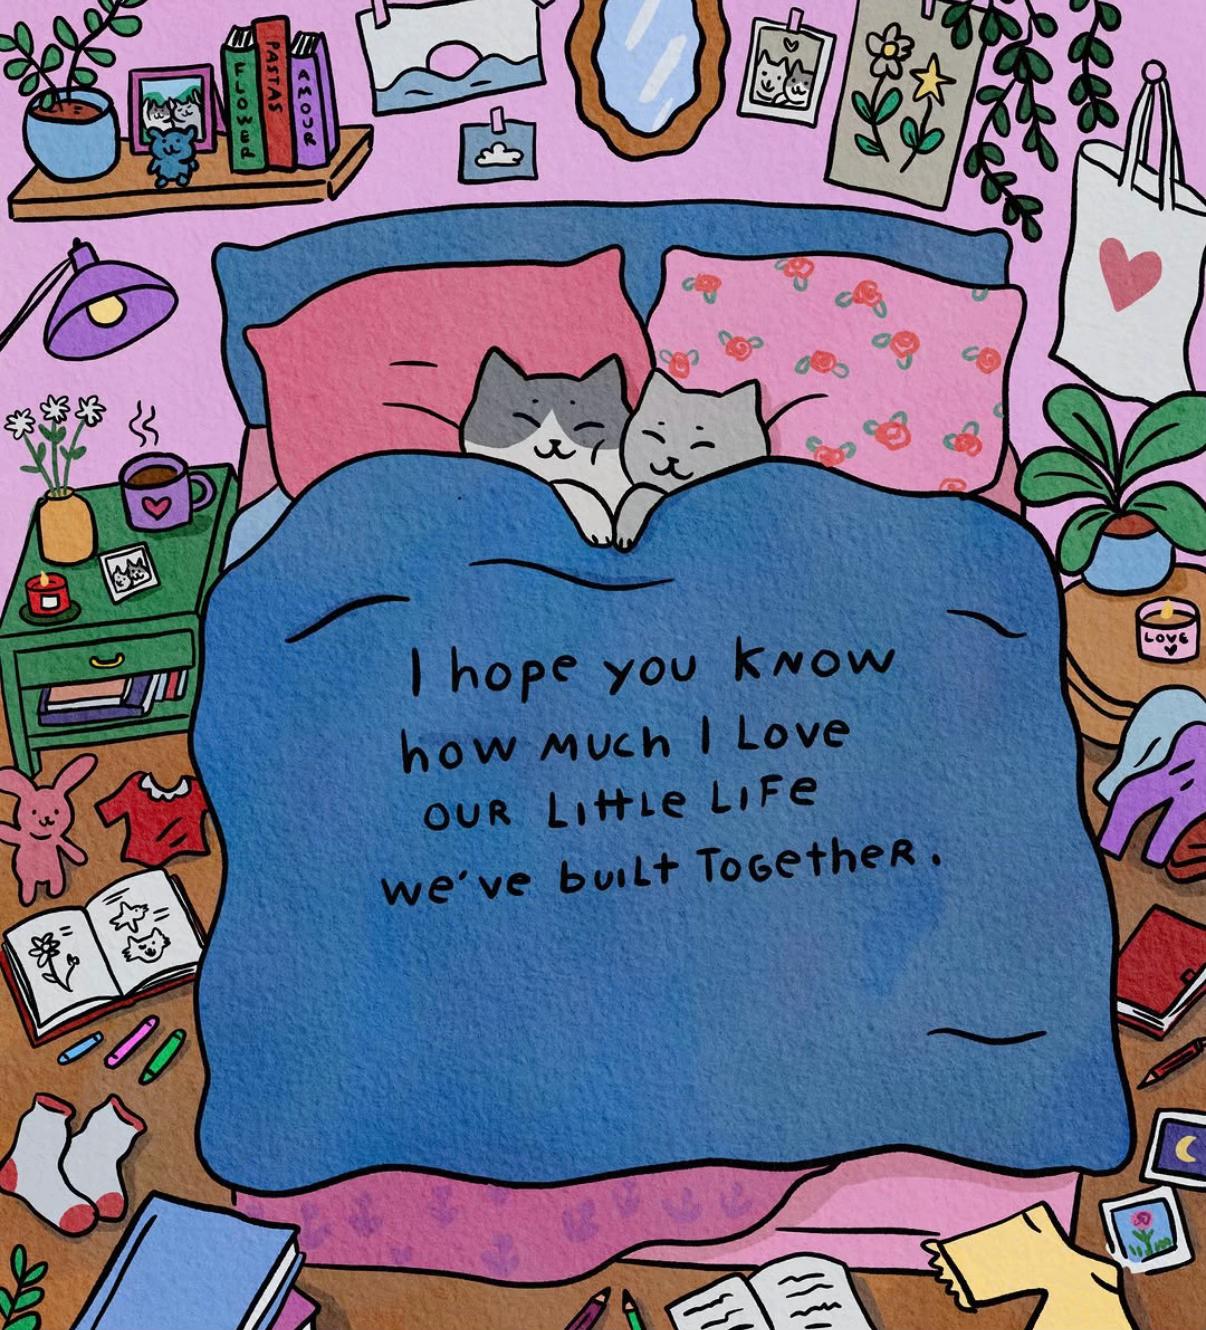 FLOWER
PASTAS
AMOUR
LOVE
I hope you know
how much I Love
our Little Life
we've built Together.